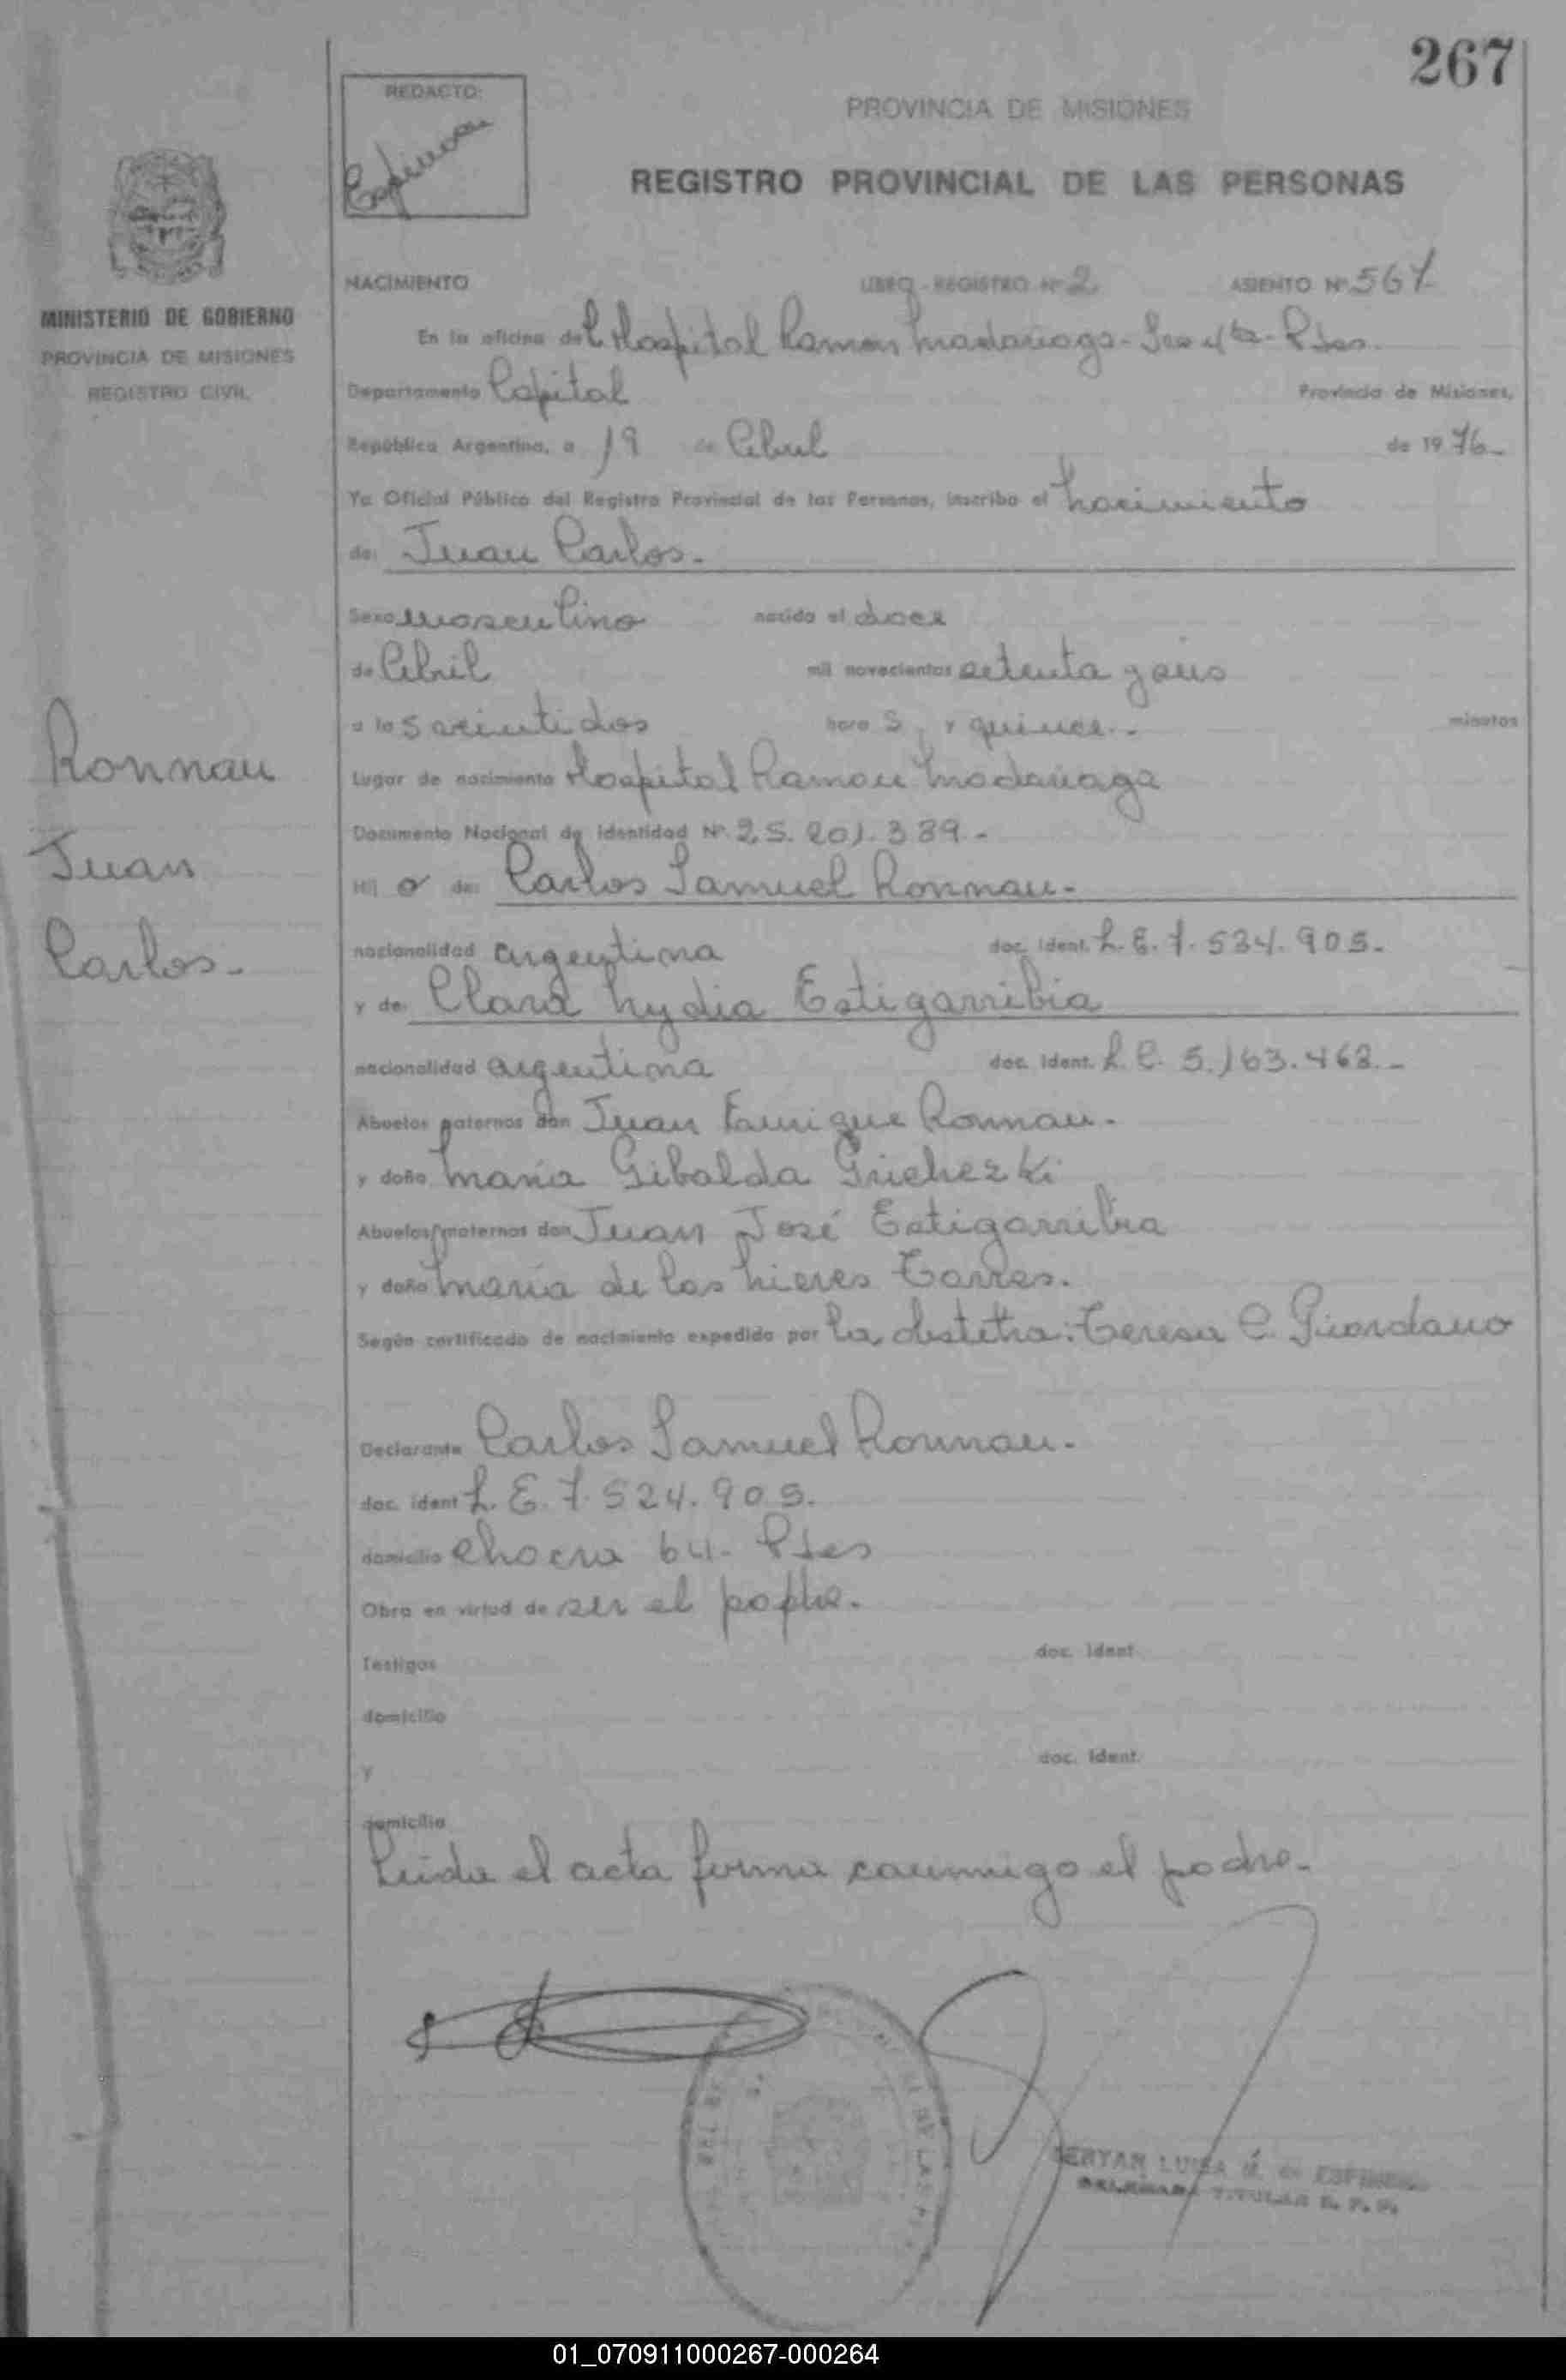 267
REDACTO:
Espinosa
PROVINCIA DE MISIONES
REGISTRO PROVINCIAL DE LAS PERSONAS
MINISTERIO DE GOBIERNO
PROVINCIA DE MISIONES
REGISTRO CIVIL
Ronnau
Juan
Carlos.-
NACIMIENTO LIBRO - REGISTRO Nº 2 ASIENTO Nº 567
En la oficina del Hospital Ramon Madariaga - Sec 4ta - Pdas.
Departamento Capital Provincia de Misiones,
República Argentina, a 19 de Abril de 1976-
Yo Oficial Público del Registro Provincial de las Personas, inscribo el nacimiento
de: Juan Carlos.-
Sexo masculino nacido el doce
de Abril mil novecientos setenta y seis
a las veintidos horas y quince.- minutos
Lugar de nacimiento Hospital Ramon Madariaga
Documento Nacional de Identidad Nº 25.201.389.-
Hijo de: Carlos Samuel Ronnau.-
nacionalidad argentina doc. ident. L.E. 7.534.905.-
y de: Clara Lydia Estigarribia
nacionalidad argentina doc. ident. L.C. 5.163.462.-
Abuelos paternos don Juan Enrique Ronnau.-
y doña Maria Gibalda Grichezki
Abuelos maternos don Juan José Estigarribia
y doña Maria de las Nieves Torres.
Según certificado de nacimiento expedido por la obstetra: Teresa C. Giordano
Declarante Carlos Samuel Ronnau.-
doc. ident L.E. 7.524.905.
domicilio chacra 64.- Pdas
Obra en virtud de ser el padre.
Testigos doc. ident.
domicilio
y doc. ident.
domicilio
Leída el acta firma conmigo el padre.-
LUISA M. de ESPINOSA
DELEGADA TITULAR R. P. P.
01_070911000267-000264